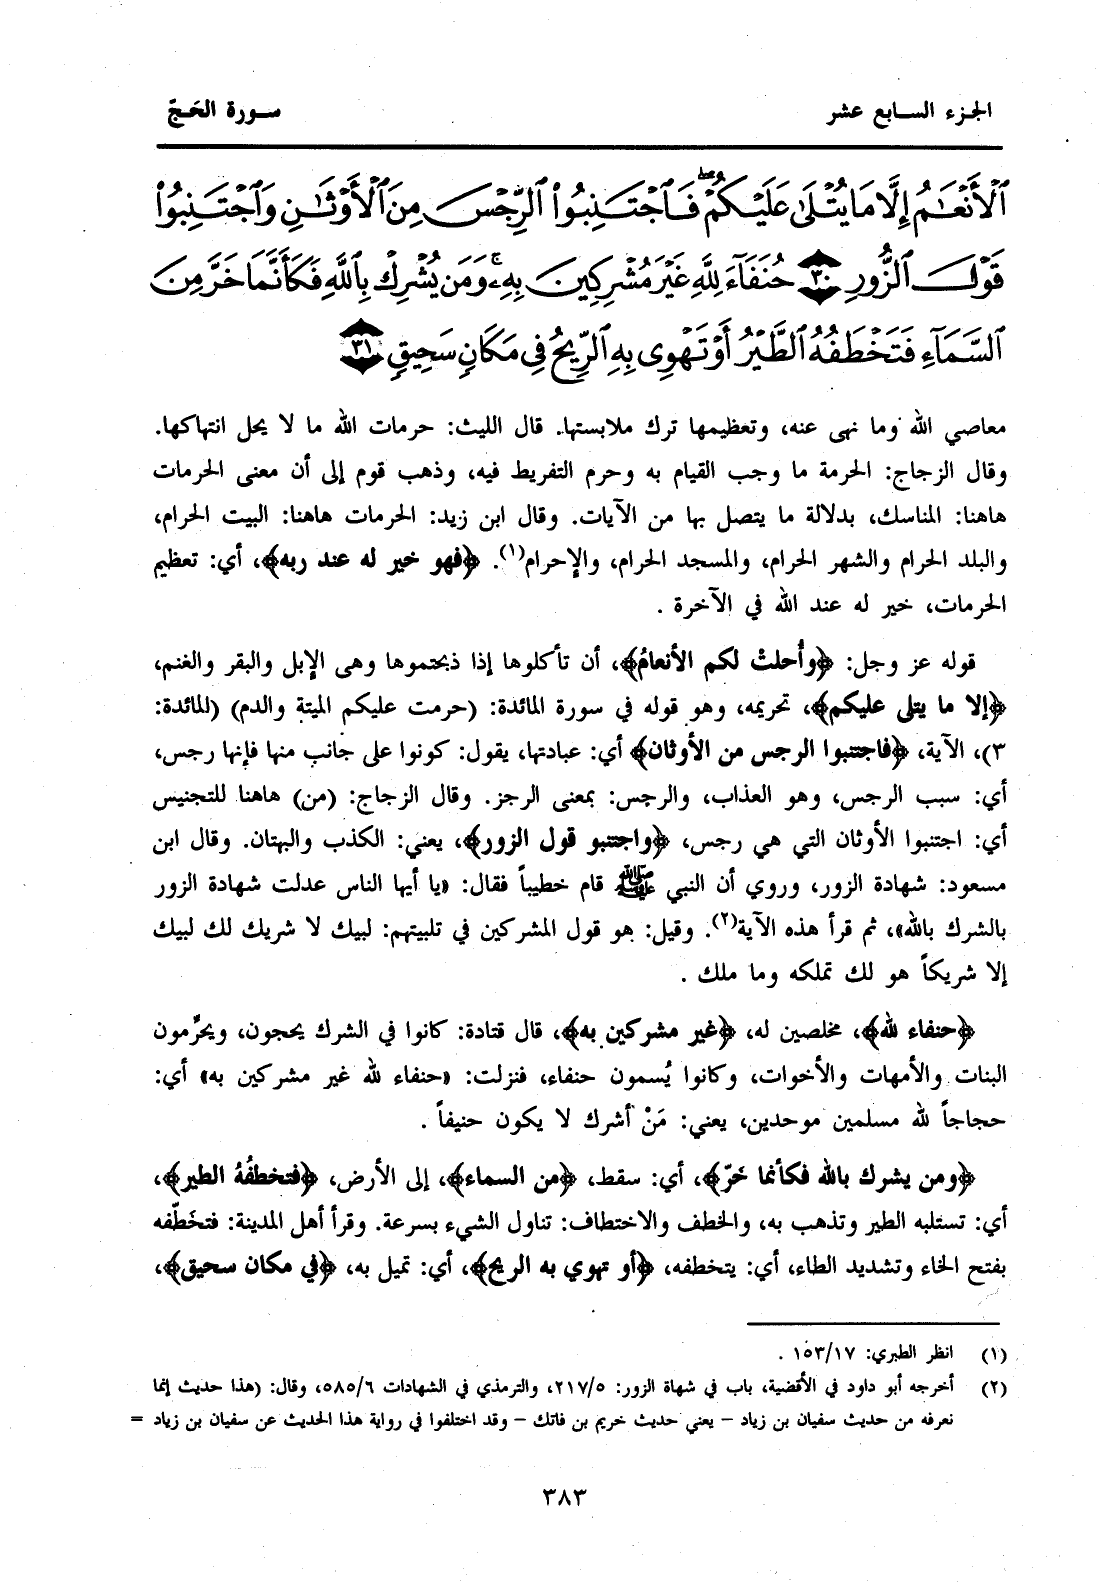 الجزء السابع عشر
سورة الحَجّ
ٱلْأَنْعَٰمُ إِلَّا مَا يُتْلَىٰ عَلَيْكُمْ ۖ فَٱجْتَنِبُوا۟ ٱلرِّجْسَ مِنَ ٱلْأَوْثَٰنِ وَٱجْتَنِبُوا۟
قَوْلَ ٱلزُّورِ ٣٠ حُنَفَآءَ لِلَّهِ غَيْرَ مُشْرِكِينَ بِهِۦ ۚ وَمَن يُشْرِكْ بِٱللَّهِ فَكَأَنَّمَا خَرَّ مِنَ
ٱلسَّمَآءِ فَتَخْطَفُهُ ٱلطَّيْرُ أَوْ تَهْوِى بِهِ ٱلرِّيحُ فِى مَكَانٍ سَحِيقٍ ٣١
معاصي الله وما نهى عنه، وتعظيمها ترك ملابستها. قال الليث: حرمات الله ما لا يحل انتهاكها.
وقال الزجاج: الحرمة ما وجب القيام به وحرم التفريط فيه، وذهب قوم إلى أن معنى الحرمات
هاهنا: المناسك، بدلالة ما يتصل بها من الآيات. وقال ابن زيد: الحرمات هاهنا: البيت الحرام،
والبلد الحرام والشهر الحرام، والمسجد الحرام، والإحرام(١). ﴿فهو خير له عند ربه﴾، أي: تعظيم
الحرمات، خير له عند الله في الآخرة .
قوله عز وجل: ﴿وأُحلتْ لكم الأنعامُ﴾، أن تأكلوها إذا ذبحتموها وهى الإبل والبقر والغنم،
﴿إلا ما يتلى عليكم﴾، تحريمه، وهو قوله في سورة المائدة: (حرمت عليكم الميتة والدم) (للمائدة:
٣)، الآية، ﴿فاجتنبوا الرجس من الأوثان﴾ أي: عبادتها، يقول: كونوا على جانب منها فإنها رجس،
أي: سبب الرجس، وهو العذاب، والرجس: بمعنى الرجز. وقال الزجاج: (من) هاهنا للتجنيس
أي: اجتنبوا الأوثان التي هي رجس، ﴿واجتنبو قول الزور﴾، يعني: الكذب والبهتان. وقال ابن
مسعود: شهادة الزور، وروي أن النبي ﷺ قام خطيباً فقال: «يا أيها الناس عدلت شهادة الزور
بالشرك بالله»، ثم قرأ هذه الآية(٢). وقيل: هو قول المشركين في تلبيتهم: لبيك لا شريك لك لبيك
إلا شريكاً هو لك تملكه وما ملك .
﴿حنفاء لله﴾، مخلصين له، ﴿غير مشركين به﴾، قال قتادة: كانوا في الشرك يحجون، ويحرِّمون
البنات والأمهات والأخوات، وكانوا يُسمون حنفاء، فنزلت: «حنفاء لله غير مشركين به» أي:
حجاجاً لله مسلمين موحدين، يعني: مَنْ أشرك لا يكون حنيفاً .
﴿ومن يشرك بالله فكأنما خَرّ﴾، أي: سقط، ﴿من السماء﴾، إلى الأرض، ﴿فتخطفُهُ الطير﴾،
أي: تستلبه الطير وتذهب به، والخطف والاختطاف: تناول الشيء بسرعة. وقرأ أهل المدينة: فتخَطّفه
بفتح الخاء وتشديد الطاء، أي: يتخطفه، ﴿أو تهوي به الريح﴾، أي: تميل به، ﴿في مكان سحيق﴾،
(١) انظر الطبري: ١٥٣/١٧ .
(٢) أخرجه أبو داود في الأقضية، باب في شهاة الزور: ٢١٧/٥، والترمذي في الشهادات ٥٨٥/٦، وقال: (هذا حديث إنما
نعرفه من حديث سفيان بن زياد – يعني حديث خريم بن فاتك – وقد اختلفوا في رواية هذا الحديث عن سفيان بن زياد =
٣٨٣